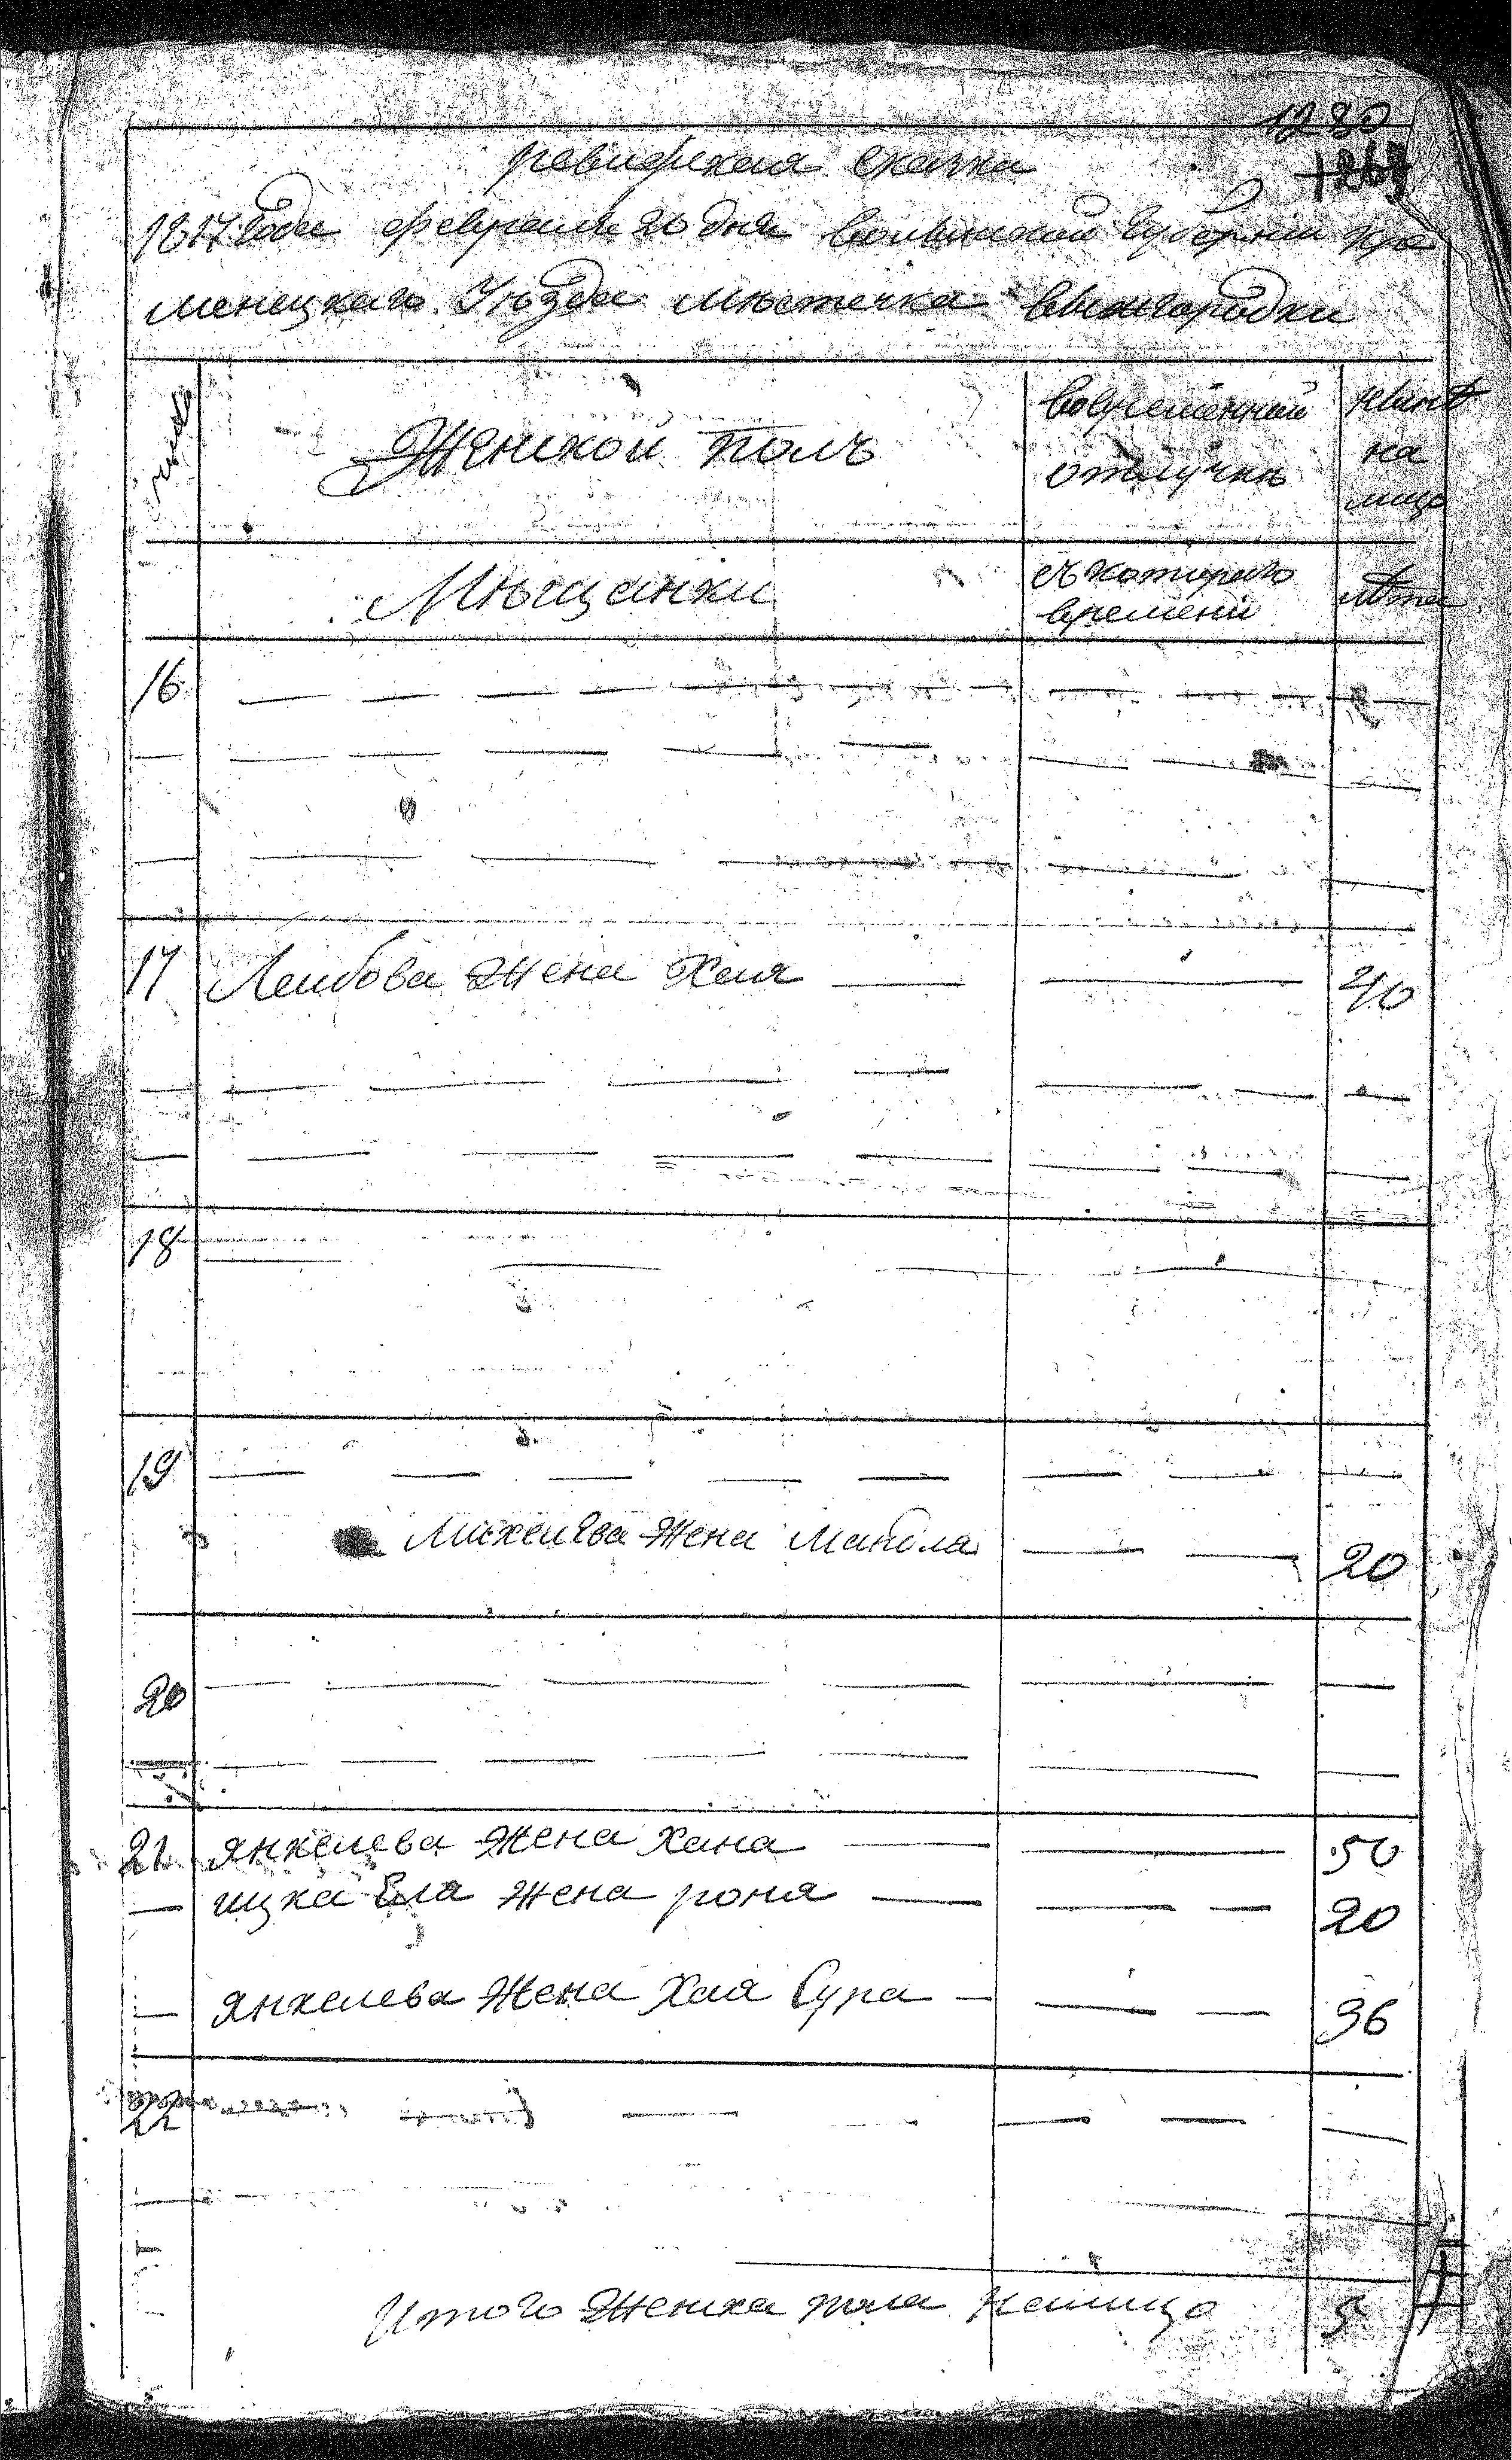 1280
1269
ревижская сказка
1817 года февраля 20 дня волынской губернии кре
менецкаго уѣзда мѣстечка вышгородки
Женской полъ
вовременной
отлучкѣ
нынѣ
на
лицо
Мѣщанки
съ котораго
времени
лѣта
16
17 Лейбова жена Хая 40
18
19
жена 20
20
21 янкелева жена хана 50
ицка жена роня 20
янкелева жена хая Сура 36
22
Итого женска пола налицо 5